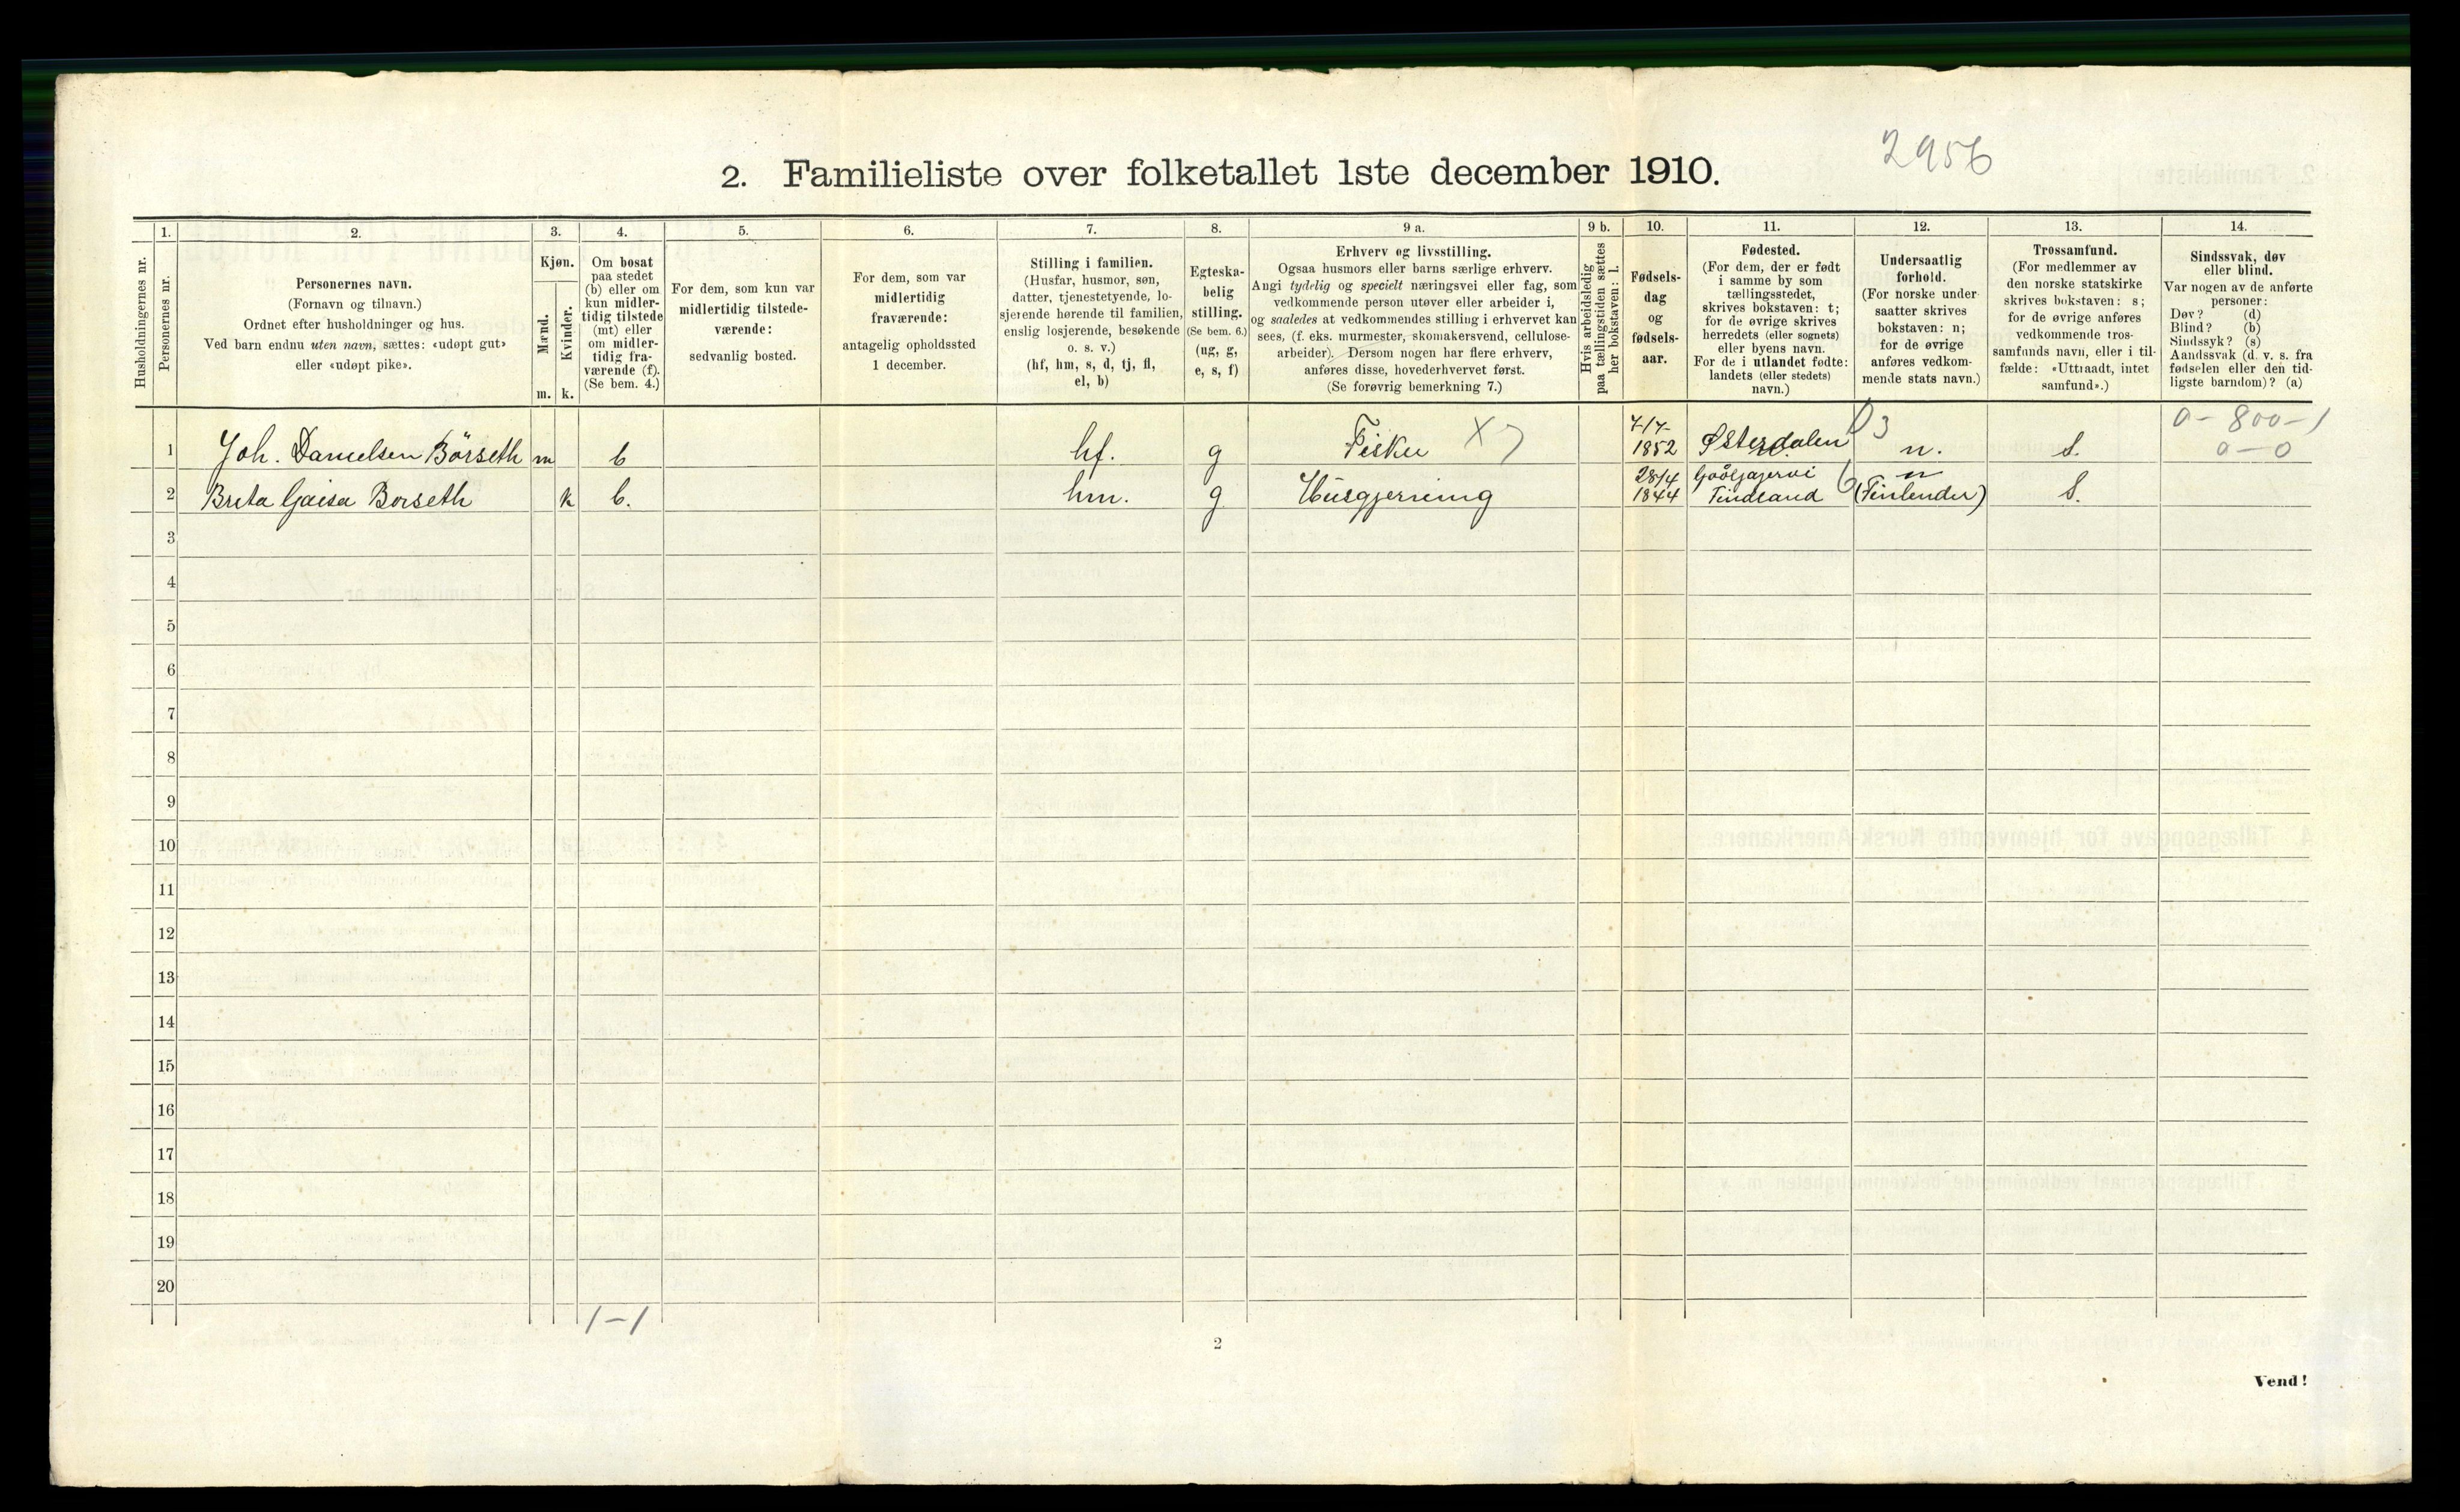 2. Familieliste over folketallet 1ste december 1910.
2956
Husholdningernes nr.
1.
Personernes nr.
2.
Personernes navn.
(Fornavn og tilnavn.)
Ordnet efter husholdninger og hus.
Ved barn endnu uten navn, sættes: «udøpt gut»
eller «udøpt pike».
3.
Kjøn.
Mænd.
Kvinder.
m. k.
4.
Om bosat
paa stedet
(b) eller om
kun midler-
tidig tilstede
(mt) eller
om midler-
tidig fra-
værende (f).
(Se bem. 4.)
5.
For dem, som kun var
midlertidig tilstede-
værende:
sedvanlig bosted.
6.
For dem, som var
midlertidig
fraværende:
antagelig opholdssted
1 december.
7.
Stilling i familien.
(Husfar, husmor, søn,
datter, tjenestetyende, lo-
sjerende hørende til familien,
enslig losjerende, besøkende
o. s. v.)
(hf, hm, s, d, tj, fl,
el, b)
8.
Egteska-
belig
stilling.
(Se bem. 6.)
(ug, g,
e, s, f)
9 a.
Erhverv og livsstilling.
Ogsaa husmors eller barns særlige erhverv.
Angi tydelig og specielt næringsvei eller fag, som
vedkommende person utøver eller arbeider i,
og saaledes at vedkommendes stilling i erhvervet kan
sees, (f. eks. murmester, skomakersvend, cellulose-
arbeider). Dersom nogen har flere erhverv,
anføres disse, hovederhvervet først.
(Se forøvrig bemerkning 7.)
9 b.
Hvis arbeidsledig
paa tællingstiden sættes
her bokstaven: l.
10.
Fødsels-
dag
og
fødsels-
aar.
11.
Fødested.
(For dem, der er født
i samme by som
tællingsstedet,
skrives bokstaven: t;
for de øvrige skrives
herredets (eller sognets)
eller byens navn.
For de i utlandet fødte:
landets (eller stedets)
navn.)
12.
Undersaatlig
forhold.
(For norske under-
saatter skrives
bokstaven: n;
for de øvrige
anføres vedkom-
mende stats navn.)
13.
Trossamfund.
(For medlemmer av
den norske statskirke
skrives bokstaven: s;
for de øvrige anføres
vedkommende tros-
samfunds navn, eller i til-
fælde: «Uttraadt, intet
samfund».)
14.
Sindssvak, døv
eller blind.
Var nogen av de anførte
personer:
Døv? (d)
Blind? (b)
Sindssyk? (s)
Aandssvak (d. v. s. fra
fødselen eller den tid-
ligste barndom)? (a)
1 Joh. Danielsen Börseth m b hf. g Fisker X 7 7/7- 1852 Østerdalen 3 n. S. 0-800-1
0-0
2 Brita Gaisa Borseth k b. hm. g Husgjerning 28/4 1844 Findland n (Finlender) S.
3
4
5
6
7
8
9
10
11
12
13
14
15
16
17
18
19
20
1-1
2
Vend!